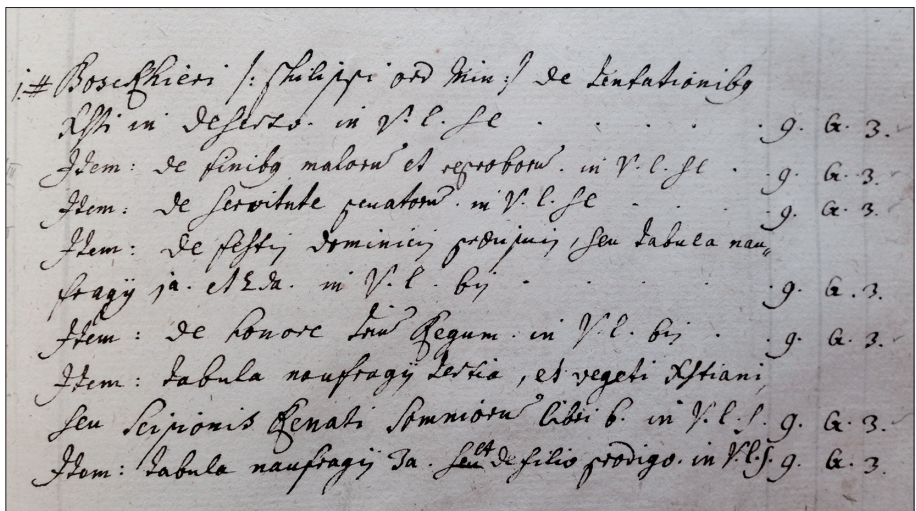 j.# Bosckhieri /: Philippi ord Min :/ de tentationibq
Xsti in deserto. in V. l. se . . . . . 9. G. 3.
Item: de finibq malorū et reproborū. in V. l. se . . 9. G. 3.
Item: de servitute peccatorū. in V. l. se . . . 9. G. 3.
Item: de festij dominicij præcipuij, seu tabula nau„
fragij ja. et 2da. in V. l. bij . . . . 9. G. 3.
Item: de honore triū Regum. in V. l. bij . . 9. G. 3.
Item: tabula naufragij tertia, et vegeti Xstiani,
seu Scipionis Renati Somniorū libri 6. in V. l. s. 9. G. 3.
Item: tabula naufragij 3a. de filio prodigo. in V. l. s. 9. G. 3.